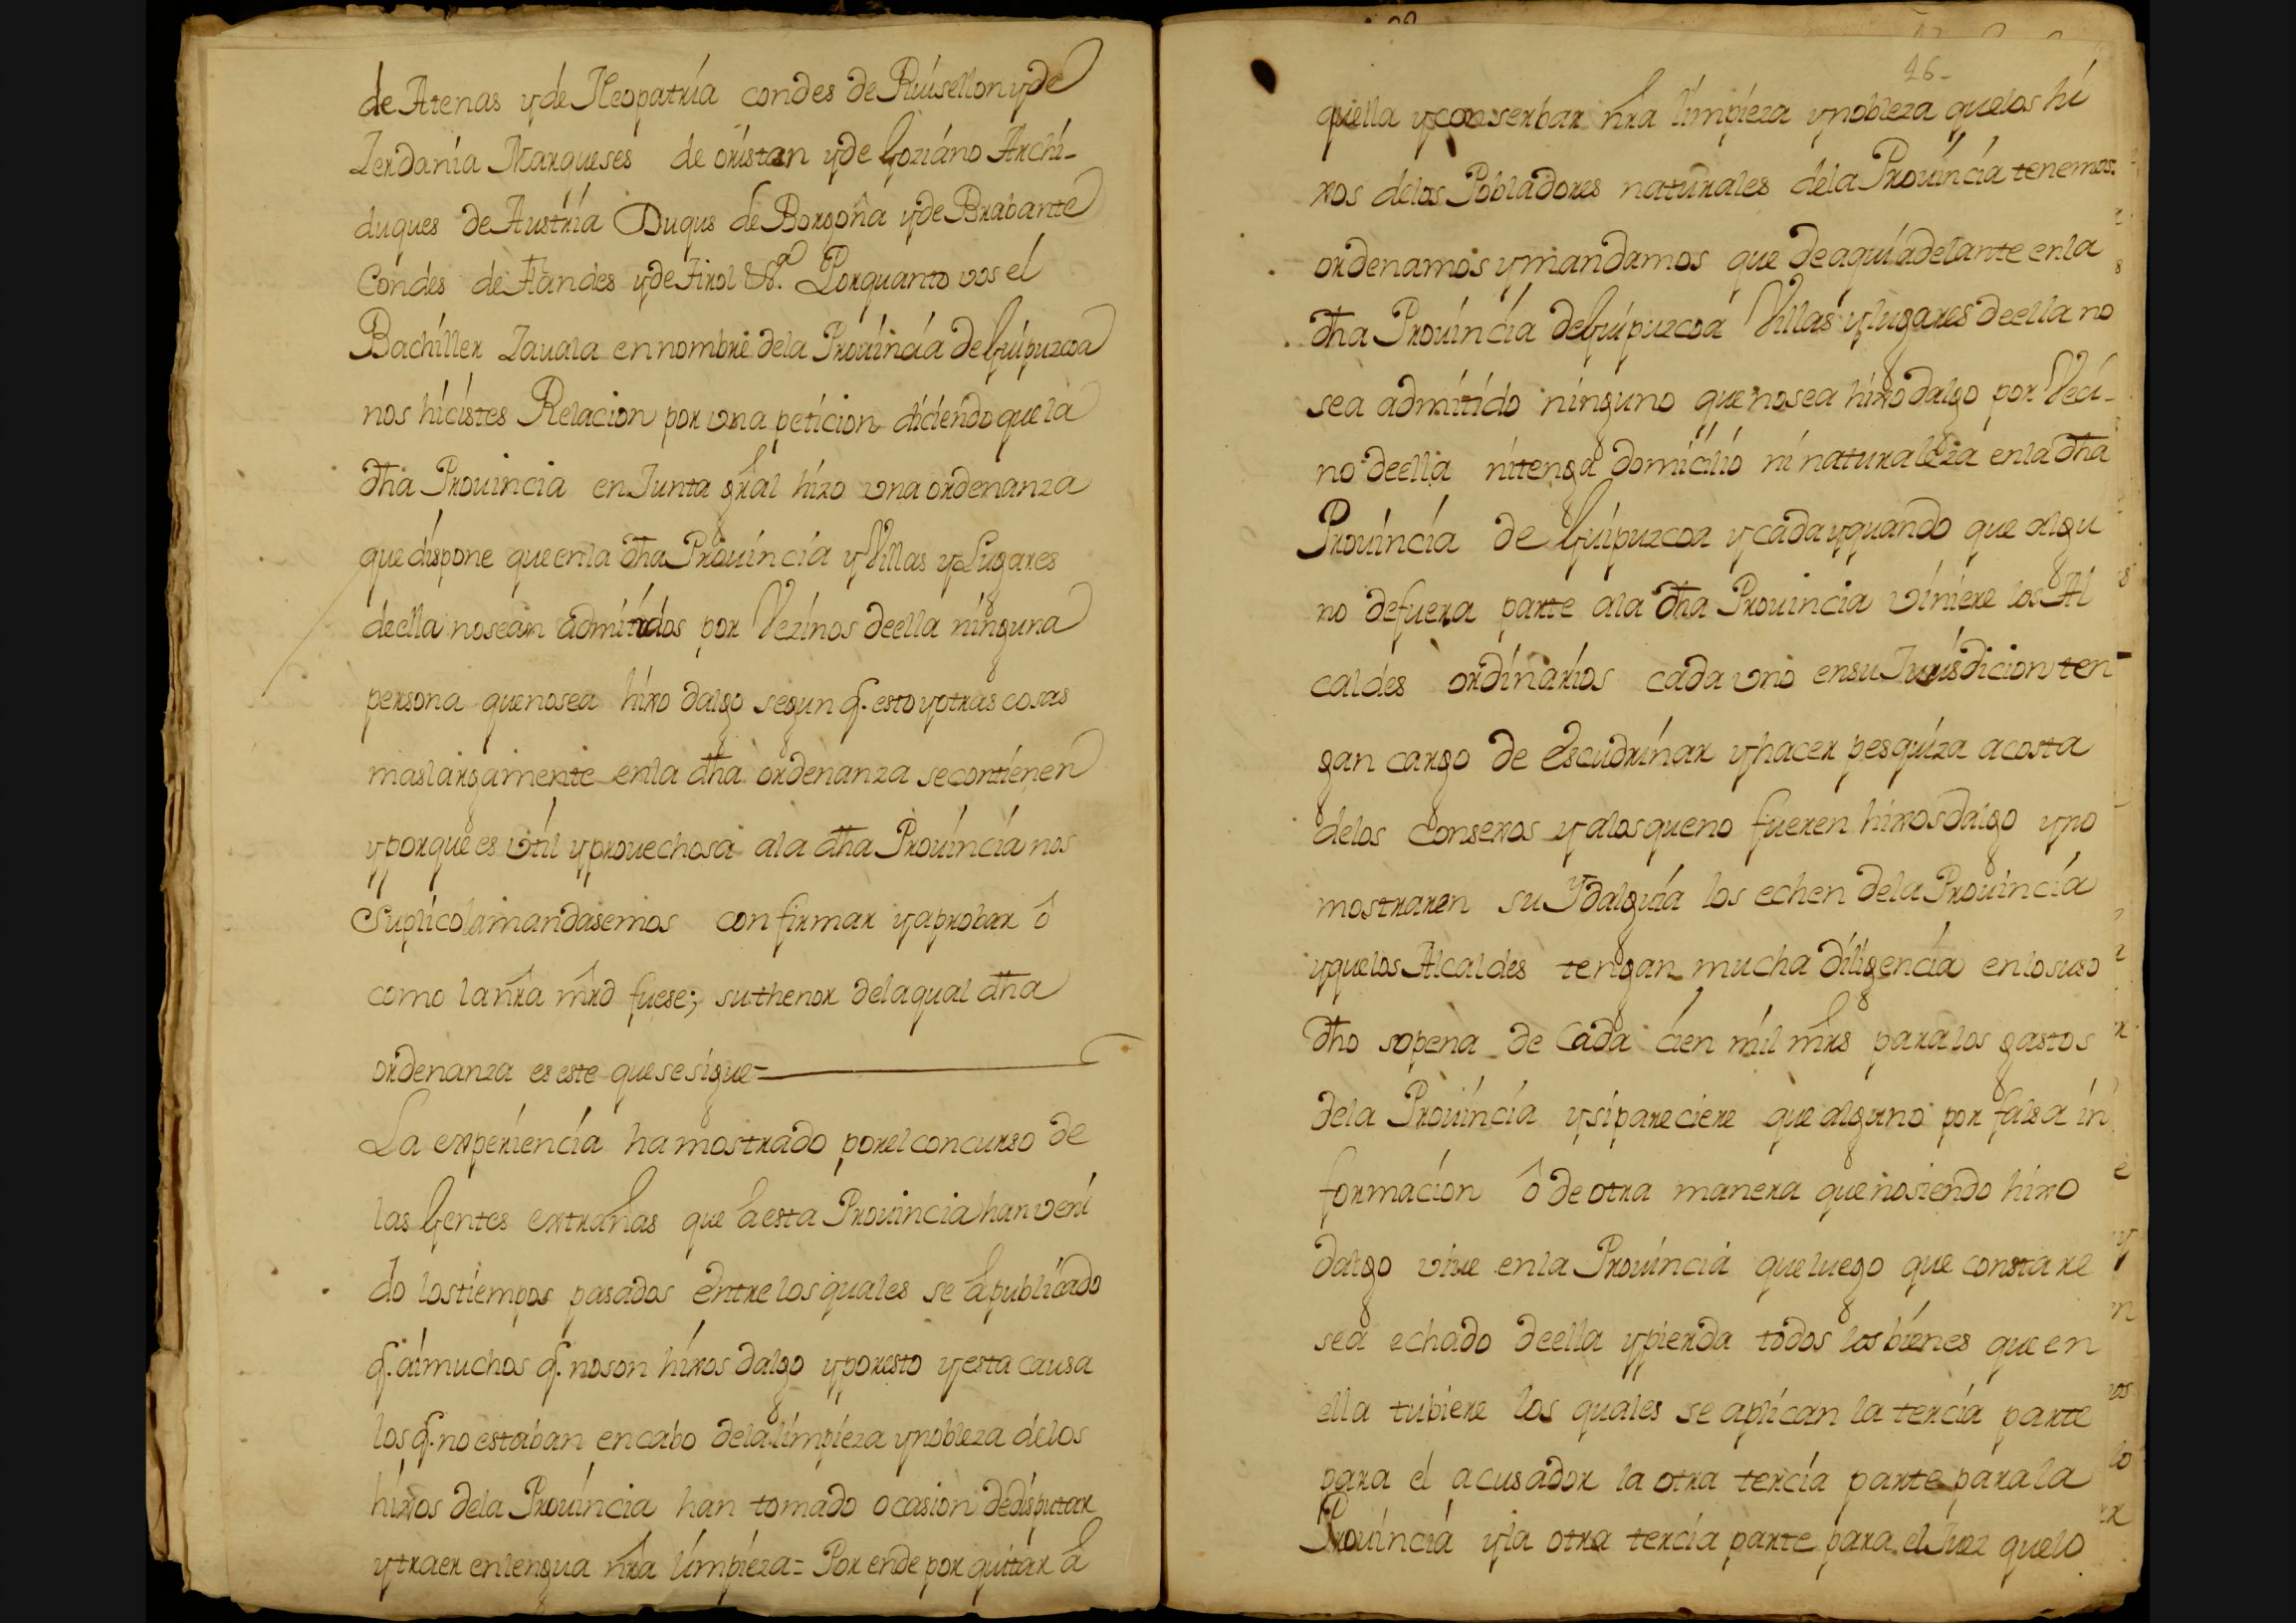 de Atenas y de Neopatria condes de Ruisellon y de
Zerdania Marqueses de oristan y de Goziano Archi-
duques de Austria Duqus de Borgoña y de Brabante
Condes de Flandes y de Tirol &ª. Porquanto vos el
Bachiller Zauala en nombre dela Prouincia de Guipuzcoa
nos hicistes Relacion por vna peticion diciendo que la
dha Prouincia en Junta gral hizo vna ordenanza
que dispone que en la dha Prouincia y Villas y Lugares
de ella no sean admitidos por Vezinos de ella ninguna
persona que no sea hixo dalgo segun q. esto y otras cosas
mas largamente en la dha ordenanza se contienen
y porque es vtil y prouechosa ala dha Prouincia nos
Suplico la mandasemos confirmar y aprobar ô
como la nra mrd fuese; su thenor dela qual dha
ordenanza es este que se sigue=
La experiencia ha mostrado por el concurso de
las Gentes extrañas que â esta Prouincia han veni
do los tiempos pasados entre los quales se â publicado
q. ai muchos q. no son hixos dalgo y por esto y esta causa
los q. no estaban en cabo dela limpieza y nobleza de los
hixos dela Prouincia han tomado ocasion de disputar
y traer en lengua nra limpieza= Por ende por quitar â
46-
quella y conserbar nra limpieza y nobleza que los hi
xos delos Pobladores naturales dela Prouincia tenemos.
ordenamos y mandamos que de aqui adelante en la
dha Prouincia de Guipuzcoa Villas y lugares de ella no
sea admitido ninguno que no sea hixo dalgo por Veci-
no de ella ni tenga domicilio ni naturaleza en la dha
Prouincia de Guipuzcoa y cada y quando que algu
no de fuera parte ala dha Prouincia viniere los Al
caldes ordinarios cada vno en su Jurisdicion ten
gan cargo de escudrinar y hacer pesquiza a costa
delos Consexos y alos que no fueren hixosdalgo y no
mostraren su Ydalguia los echen dela Prouincia
y que los Alcaldes tengan mucha diligencia en lo suso
dho sopena de Cada cien mil mrs para los gastos
dela Prouincia y si pareciere que alguno por falsa in
formacion ô de otra manera que no siendo hixo
dalgo viue en la Prouincia que luego que constare
sea echado de ella y pierda todos los bienes que en
ella tubiere los quales se aplican la tercia parte
para el acusador la otra tercia parte para la
Prouincia y la otra tercia parte para el Juez que lo